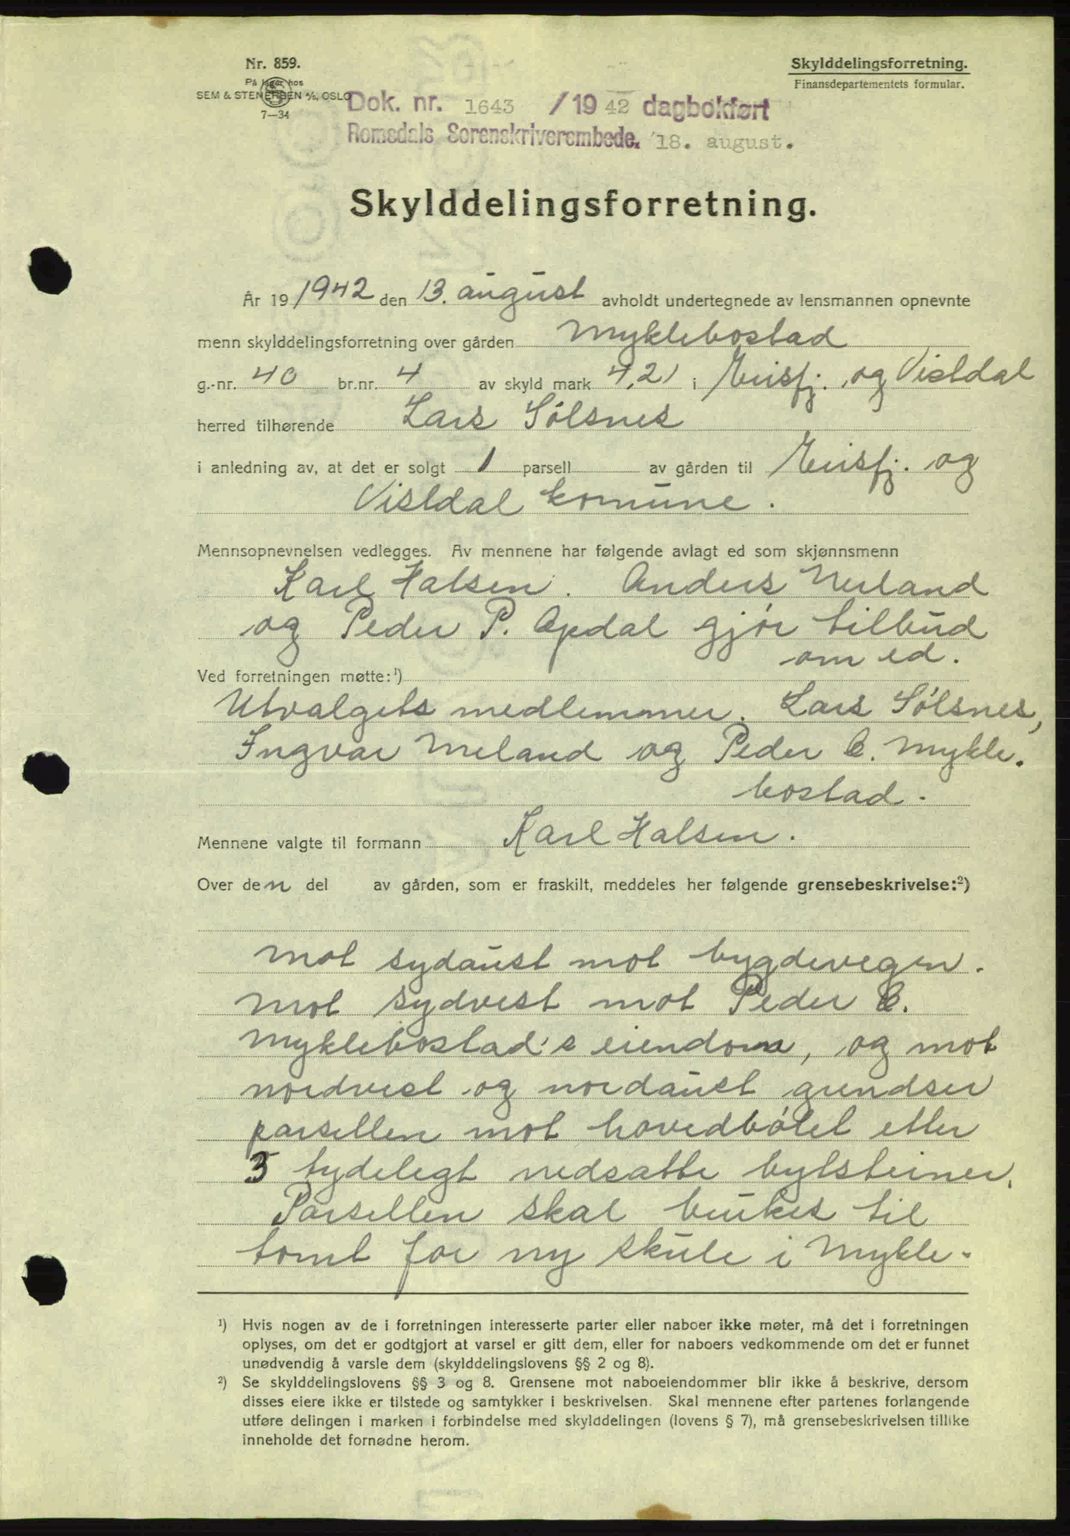 Nr. 859.
På lager hos
SEM & STENERSEN A/S, OSLO
7—34
Skylddelingsforretning.
Finansdepartementets formular.
Dok. nr. 1643 /1942 dagbokført
Romsdals Sorenskriverembede. 18. august.
Skylddelingsforretning.
År 19 1942 den 13. august avholdt undertegnede av lensmannen opnevnte
menn skylddelingsforretning over gården Myklebostad
g.-nr. 40 br.nr. 4 av skyld mark 4,21 i Eirisfj. og Vistdal
herred tilhørende Lars Sølsnes
i anledning av, at det er solgt 1 parsell av gården til Eirisfj. og
Vistdal komune.
Mennsopnevnelsen vedlegges. Av mennene har følgende avlagt ed som skjønnsmenn
Karl Halsen. Anders Nerland
og Peder P. Opdal gjør tilbud
om ed.
Ved forretningen møtte:¹)
Utvalgets medlemmer. Lars Sølsnes,
Ingvar Meland og Peder C. Mykle-
bostad.
Mennene valgte til formann Karl Halsen.
Over den del av gården, som er fraskilt, meddeles her følgende grensebeskrivelse:²)
Mot sydaust mot bygdevegen.
Mot sydvest mot Peder C.
Myklebostad's eiendom, og mot
nordvest og nordaust grendser
parsellen mot hovedbølet etter
3 tydelegt nedsatte bytsteiner.
Parsellen skal brukes til
tomt for ny skule i Mykle-
¹) Hvis nogen av de i forretningen interesserte parter eller naboer ikke møter, må det i forretningen
oplyses, om det er godtgjort at varsel er gitt dem, eller for naboers vedkommende om det er funnet
unødvendig å varsle dem (skylddelingslovens §§ 2 og 8).
²) Se skylddelingslovens §§ 3 og 8. Grensene mot naboeiendommer blir ikke å beskrive, dersom
disses eiere ikke er tilstede og samtykker i beskrivelsen. Skal mennene efter partenes forlangende
utføre delingen i marken i forbindelse med skylddelingen (lovens § 7), må grensebeskrivelsen tillike
inneholde det fornødne herom.